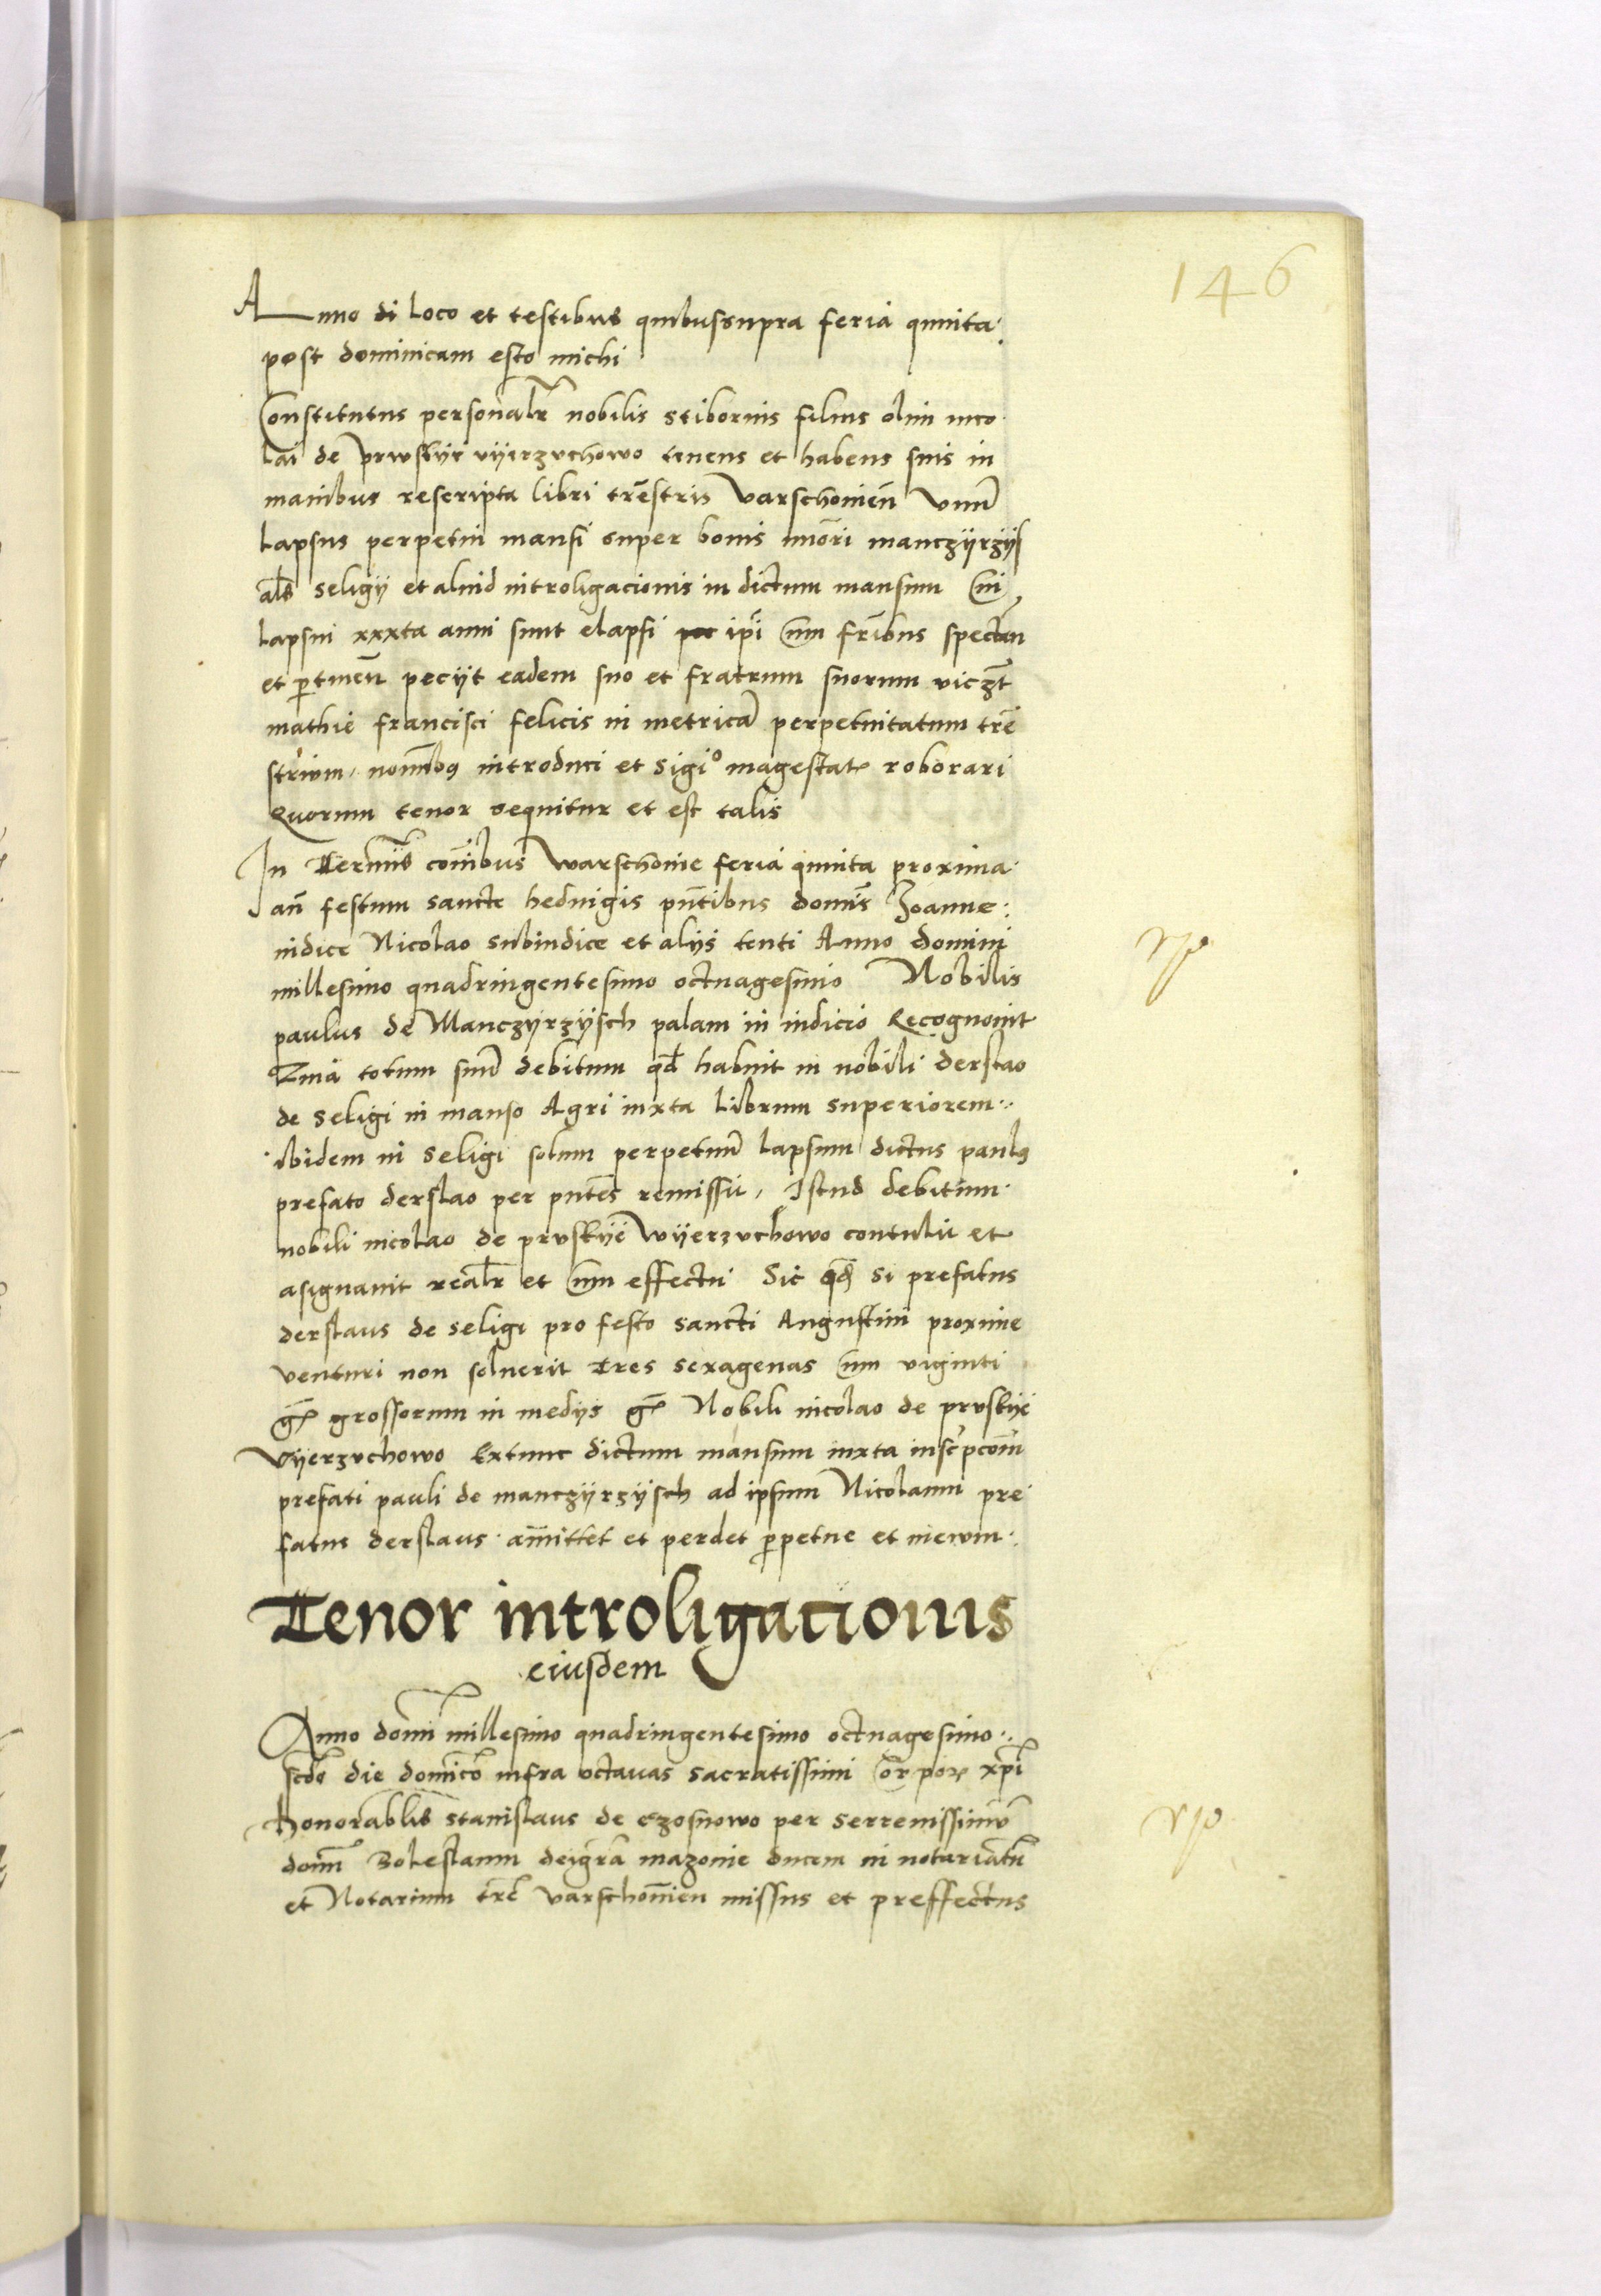 146
Anno di loco et testibus quibussupra feria quinta
post dominicam esto michi
Constitutus personalr nobilis stibornis filius olim nico
lai de pruskÿe vÿerzvchowo tenens et habens suis in
manibus rescripta libri trestris varschonien vnum
lapsus perpetui mansi super bonis minori manczÿrzÿs
als seligÿ et aliud introligacionis in dictum mansum cui
lapsui xxxta anni sunt elapsi ipi cum fribus spectan
et ptinen peciit eadem suo et fratrum suorum viczt
mathie francisci felicis in metrica perpetuitatum tre
strium nominibus introduci et sigio magestat roborari
Quorum tenor sequitur et est talis
In Termis conibus Warschouie feria quinta proxima
an festum sancte hedvigis pntibus domis Joanne
iudice Nicolao subiudice et alys tenti Anno domini
millesimo quadringentesimo octuagesimo Nobilis
paulus de Manczÿrzÿsch palam in iudicio Recognouit
totum suum debitum qd habuit in nobili derslao
de seligi in manso Agri iuxta librum superiorem
ibidem in seligi solum perpetuum lapsum dictus paulus
prefato derslao per pntes remissit, Istud debitum
nobili nicolao de prvskÿe Wÿerzvchowo contulit et
asignauit realr et cum effectu Sic qd si prefatus
derslaus de seligi pro festo sancti Augustini proxime
venturi non soluerit tres sexagenas cum viginti
gr grossorum in medys gr Nobili nicolao de prvskÿe
Vÿerzvchowo Extunc dictum mansum iuxta inscrpcom
prefati pauli de manczÿrzÿsch ad ipsum Nicolaum pre
fatus derslaus amittet et perdet ppetue et in ewm
Tenor introligacionis
eiusdem
Anno domi millesimo quadringentesimo octuagesimo
scdo die domico infra octauas sacratissimi corpor xpi
honorablis stanislaus de czosnowo per serrenissimu
domm Boleslaum deigra mazouie ducem in notariatu
et Notarium tre varschonien missus et preffectus